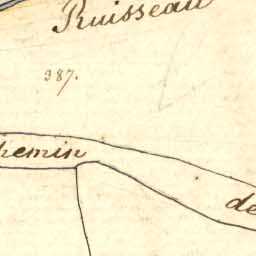 Ruisseau
387.
hemin
de